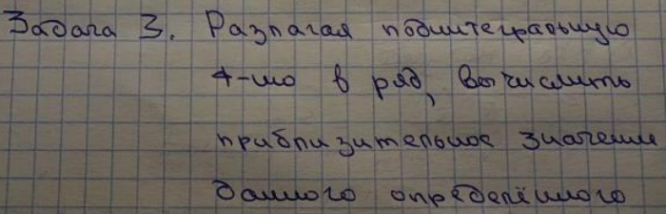 Задача 3. Разлагая подинтегральную
ф-ию в ряд, вычислить
приблизительное значение
данного определённого